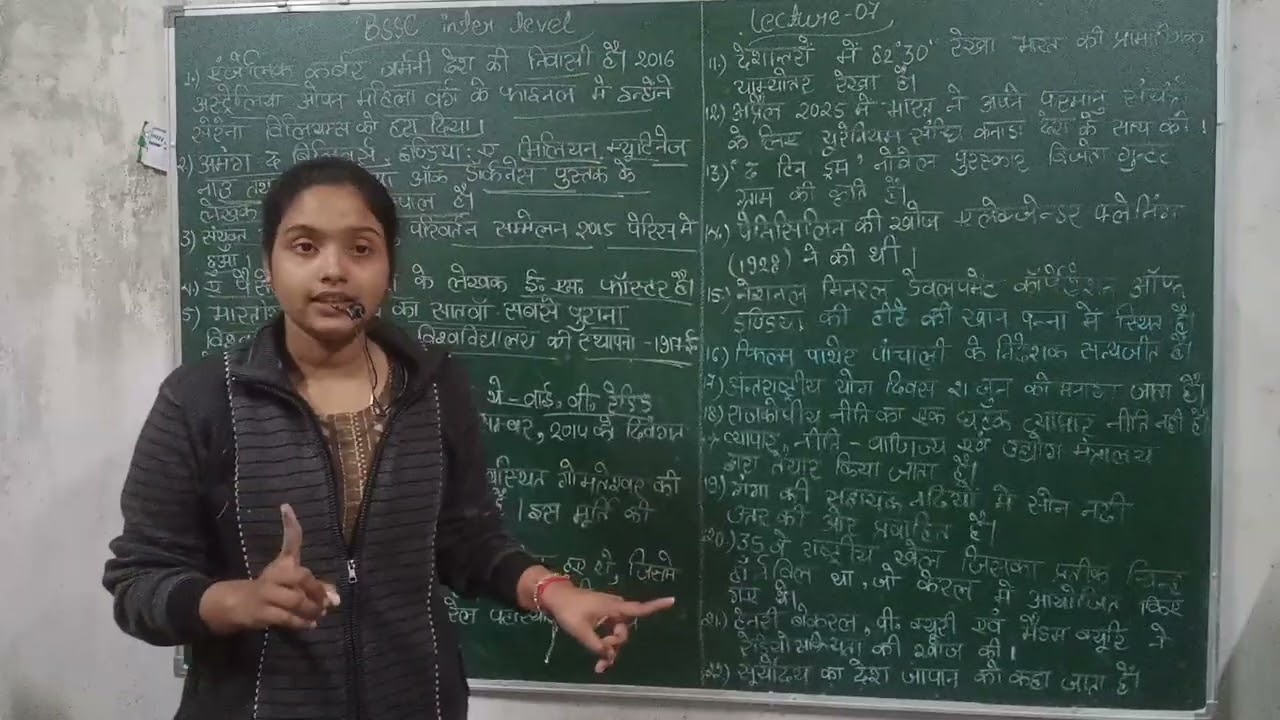 BSSC inter level
Lecture-07
1.) एंजेलिक कर्बर जर्मनी देश की निवासी है। 2016
अस्ट्रेलिया ओपन महिला वर्ग के फाइनल में इन्होंने
सेरेना विलियम्स को हरा दिया।
2) अमंग द बिलिवर्स, इन्डिया: ए मिलियन म्यूटिनेज
नाउ तथा ऑफ डार्कनेस पुस्तक के
लेखक पाल है।
3) संयुक्त परिवर्तन सम्मेलन 2015 पेरिस में
हुआ।
4.) ए पैसे के लेखक ई॰ एम॰ फॉस्टर है।
5) भारतीय का सातवाँ सबसे पुराना
विश्व विश्वविद्यालय की स्थापना -1917 ई॰
थे - वार्ड, वी॰ रेडिड
म्बर, 2014 को दिवंगत
स्थित गोमतेश्वर की
है। इस मूर्ति की
जिसमे
रेल
11.) देशान्तरो में 82°30' रेखा भारत की प्रामाणिक
याम्योतर रेखा है।
12) अप्रैल 2025 में भारत ने अपने परमाणु संयंत्र
के लिए यूरेनियम संधि कनाडा देश के साथ की।
13) "द टिन ड्रम' नोबेल पुरस्कार विजेता गुन्टर
ग्रास की कृति है।
14.) पेनिसिलिन की खोज एलेग्जेन्डर फ्लेमिंग
(1928) ने की थी।
15.) नेशनल मिनरल डेवलपमेंट कॉर्पोरेशन ऑफ
इण्डिया की हीरे की खान पन्ना में स्थित है।
16) फिल्म पाथेर पांचाली के निर्देशक सत्यजीत है।
17) अन्तराष्ट्रीय योग दिवस 21 जून को मनाया जाता है।
18) राजकोषीय नीति का एक घटक व्यापार नीति नही है
→ व्यापार नीति - वाणिज्य एवं उद्योग मंत्रालय
द्वारा तैयार किया जाता है।
19.) गंगा की सहायक नदियों में सोन नदी
उत्तर की ओर प्रवाहित है।
20.) 35 वे राष्ट्रीय खेल जिसका प्रतीक चिन्ह
हॉर्नबिल था, जो केरल में आयोजित किए
गए थे।
21.) हेनरी बेकरल, पी॰ क्यूरी एवं मैडम क्यूरि ने
रेडियो सक्रियता की खोज की।
22) सूर्योदय का देश जापान को कहा जाता है।